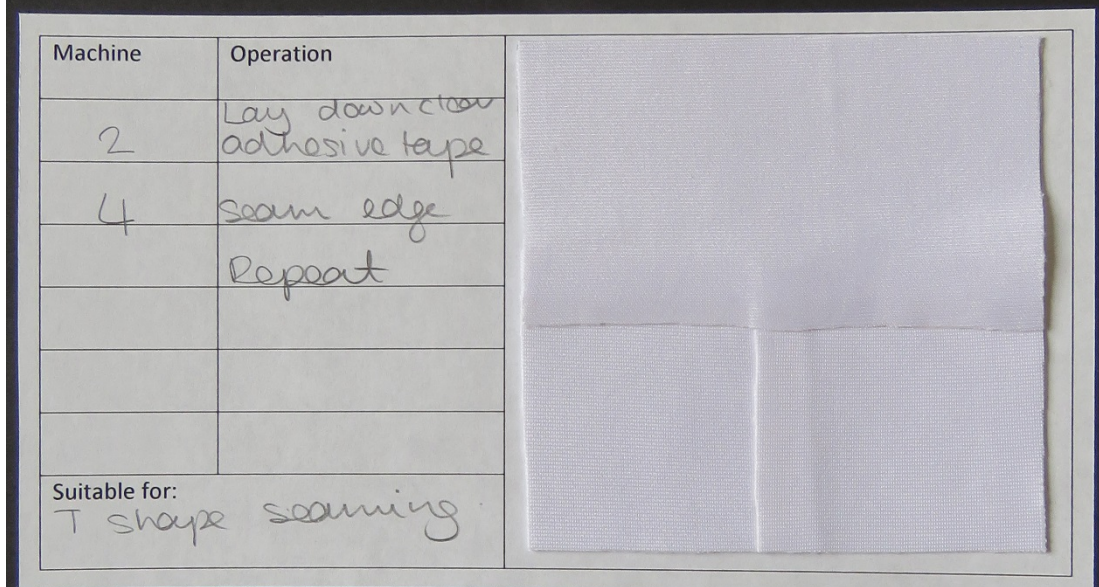 Machine Operation
Lay down clear
2 adhesive tape
4 seam edge
Repeat
Suitable for:
T shape seaming